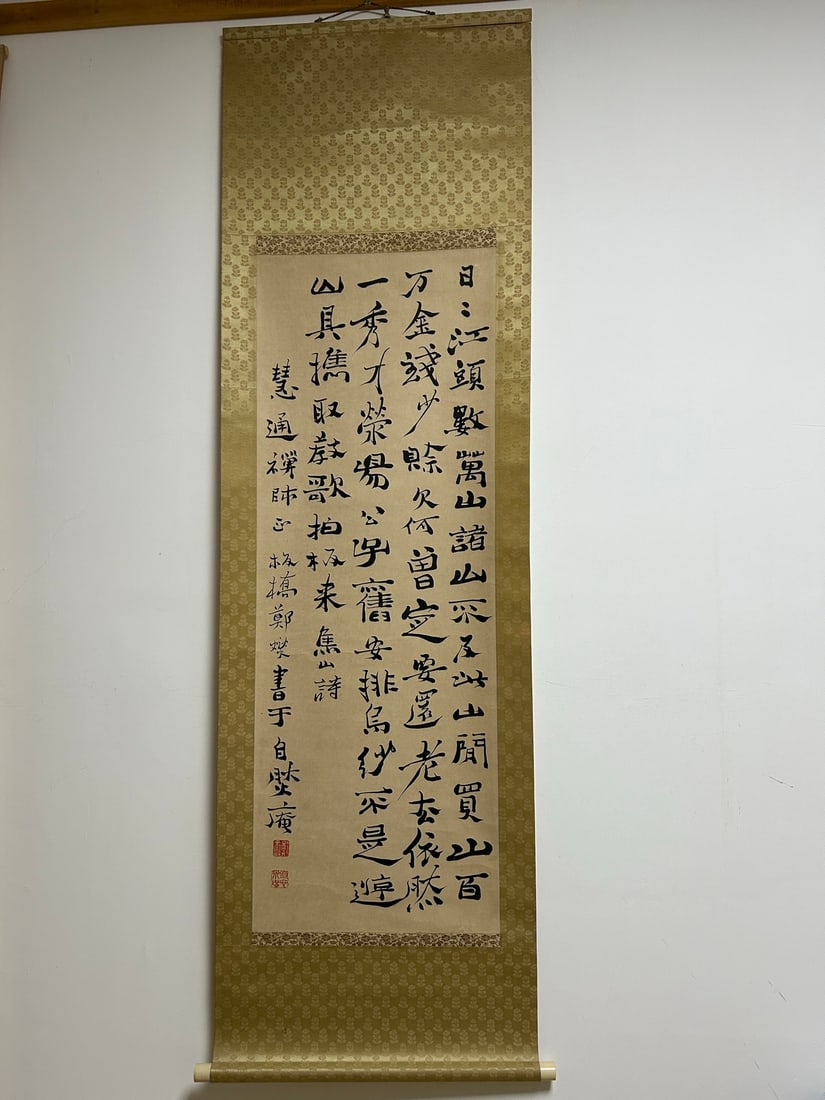 日〻江頭數萬山諸山不及此山閒買山百
万金錢少賒欠何曾定要還老去依然
一秀才滎陽公子舊安排烏紗不是遊
山具攜取教歌拍板来焦山詩
慧通禪師正板橋鄭燮書于自然庵